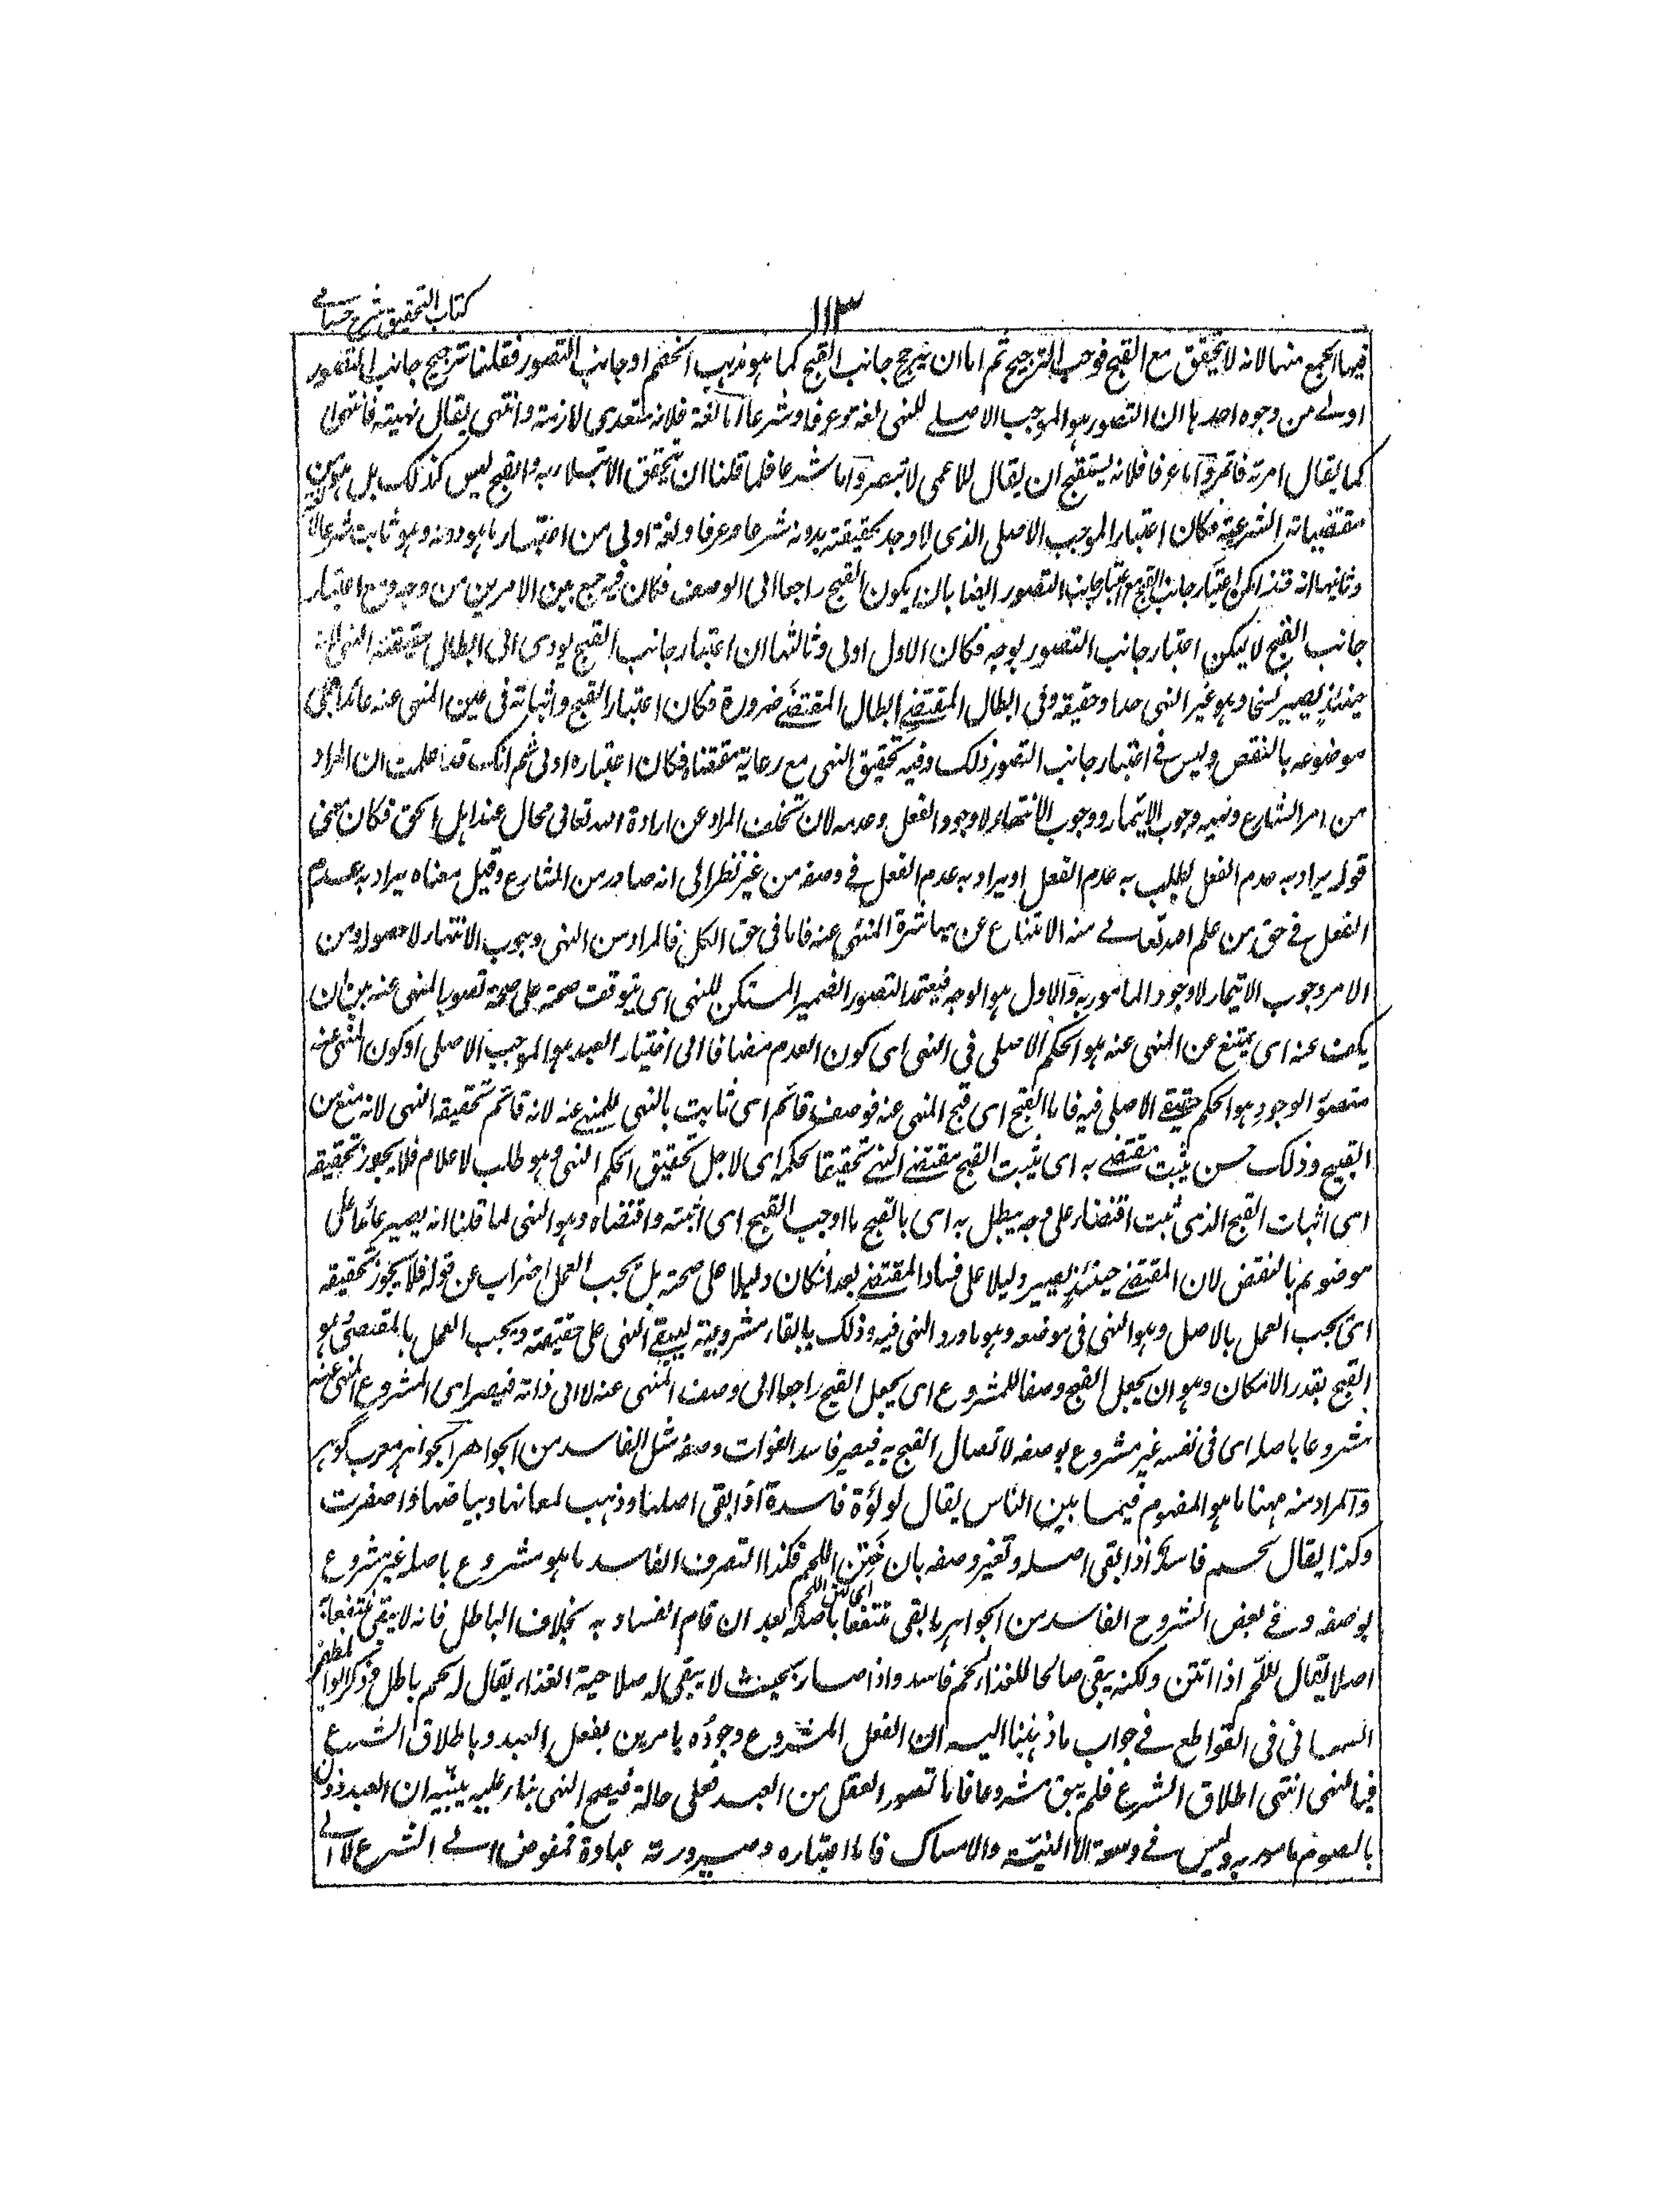 ١١٣
كتاب التحقيق شرح حسامى
فيها الجمع منهما لانه لا يتحقق مع القبح فوجب الترجيح ثم اما ان يترجح جانب القبح كما هو مذهب الخصم او جانب التصور فقلنا ترجيح جانب التصور
اولے من وجوه احدها ان التصور هو الموجب الاصلے للنهى لغة وعرفا وشرعا اما لغة فلانه متعدى لازمته وانتهى يقال نهيته فانتهى
كما يقال امرته فاتمر واما عرفا فلانه يستقبح ان يقال للاعمى لا تبصر واما شرعا فلما قلنا ان تحقق الابتلاء به والقبح ليس كذلك بل هو من
مقتضياته الشرعية فكان اعتبار الموجب الاصلى الذى لا وجد لحقيقته بدونه شرعا وعرفا ولغة اولى من اعتبار ما هو دونه وهو ثابت شرعا لا
وثانيها انه قد امكن اعتبار جانب القبح مع اعتبار جانب التصور ايضا بان يكون القبح راجعا الى الوصف فكان فيه جمع بين الامرين من وجه ومع اعتبار
جانب القبح لا يمكن اعتبار جانب التصور بوجه فكان الاول اولى وثالثها ان اعتبار جانب القبح يودى الى ابطال حقيقته النهى لانه
حينئذ يصير نسخا وهو غير النهى حدا وحقيقة وفى ابطال المقتضے ابطال المقتضے ضرورة فكان اعتبار القبح واثباته فى عين المنهى عنه عائدا على
موضوعه بالنقض وليس فے اعتبار جانب التصور ذلك وفيه تحقيق النهى مع رعاية مقتضاه فكان اعتباره اولى ثم انك قد علمت ان المراد
من امر الشارع ونهيه وجوب الايتمار ووجوب الانتهاء لا وجود الفعل وعدمه لان تخلف المراد عن ارادة الله تعالى محال عند اهل الحق فكان معنى
قوله يراد به عدم الفعل يطلب به عدم الفعل او يراد به عدم الفعل فے وصفه من غير نظر الى انه صادر من الشارع وقيل معناه يراد به عدم
الفعل فے حق من علم الله تعالے منه الامتناع عن مباشرة المنهى عنه فاما فى حق الكل فالمراد من النهى وجوب الانتهاء لا حصوله ومن
الامر وجوب الايتمار لا وجود المامور به والاول هو الوجه فيعتمد التصور الضمير المستكن للنهى اى يتوقف صحته على صحة تصور المنهى عنه بين ان
يكف عنه اى يمتنع عن المنهى عنه هو الحكم الاصلى فى النهى اى كون العدم مضافا الى اختيار العبد هو الموجب الاصلى او كون المنهى عنه
متصور الوجود هو الحكم حقيقے الاصلى فيه فاما القبح اى قبح المنهى عنه فوصف قائم اى ثابت بالنهى للمنهى عنه لانه قائم لتحقيقه النهى لانه منع من
القبيح وذلك حسن يثبت مقتضے به اى يثبت القبح مقتضے النهے تحقيقا لحكمه اى لاجل تحقيق الحكم النهى وهو طلب لاعلام فلا يجوز تحقيقه
اى اثبات القبح الذى ثبت اقتضاء على وجه يبطل به اى بالقبح ما اوجب القبح اى اثبته واقتضاه وهو النهى لما قلنا انه يصير عائدا على
موضوعه بالنقض لان المقتضے حينئذ يصير دليلا على فساد المقتضے بعد انكان دليلا على صحته بل يجب العمل اضراب عن قوله فلا يجوز تحقيقه
اى يجب العمل بالاصل وهو النهى فى موضعه وهو ما ورد النهى فيه وذلك بابقاء مشروعيته ليبقے النهى على حقيقته ويجب العمل بالمقتضى وهو
القبح بقدر الامكان وهو ان يجعل القبح وصفا للمشروع اى يجعل القبح راجعا الى وصف المنهى عنه لا الى ذاته فيصير اى المشروع المنهى عنه
مشروعا باصله اى فى نفسه غير مشروع بوصفه لاتصال القبح به فيصير فاسد الفوات وصفه مثل الفاسد من الجواهر الجواهر معرب گوهر
والمراد منه ههنا ما هو المفهوم فيما بين الناس يقال لؤلؤة فاسدة اذا بقى اصلها وذهب لمعانها وبياضها واصفرت
وكذا يقال لحم فاسد اذا بقى اصله وتغير وصفه بان خنز اللحم فكذا التصرف الفاسد ما هو مشروع باصله غير مشروع
اى نتن اللحم
بوصفه وفے بعض الشروح الفاسد من الجواهر ما بقى منتفعا باصله بعد ان قام الفساد به بخلاف الباطل فانه لا يبقى منتفعا به
اصلا يقال للحم اذا انتن ولكنه يبقى صالحا للغذاء لحم فاسد واذا صار بحيث لا يبقى له صلاحية الغذاء يقال له لحم باطل وذكر ابو المظفر
السمعانى فى القواطع فے جواب ما ذهبنا اليه ان الفعل المشروع وجوده بامرين بفعل العبد وباطلاق الشرع
فبالنهى انتهى اطلاق الشرع فلم يبق مشروعا فاما تصور الفعل من العبد فعلى حاله فيصح النهى بناء عليه يبينه ان العبد ماذون
بالصوم مامور به وليس فے وسعه الا النية والامساك فاما اعتباره وصيرورته عبادة فمفوض الے الشرع لا الے